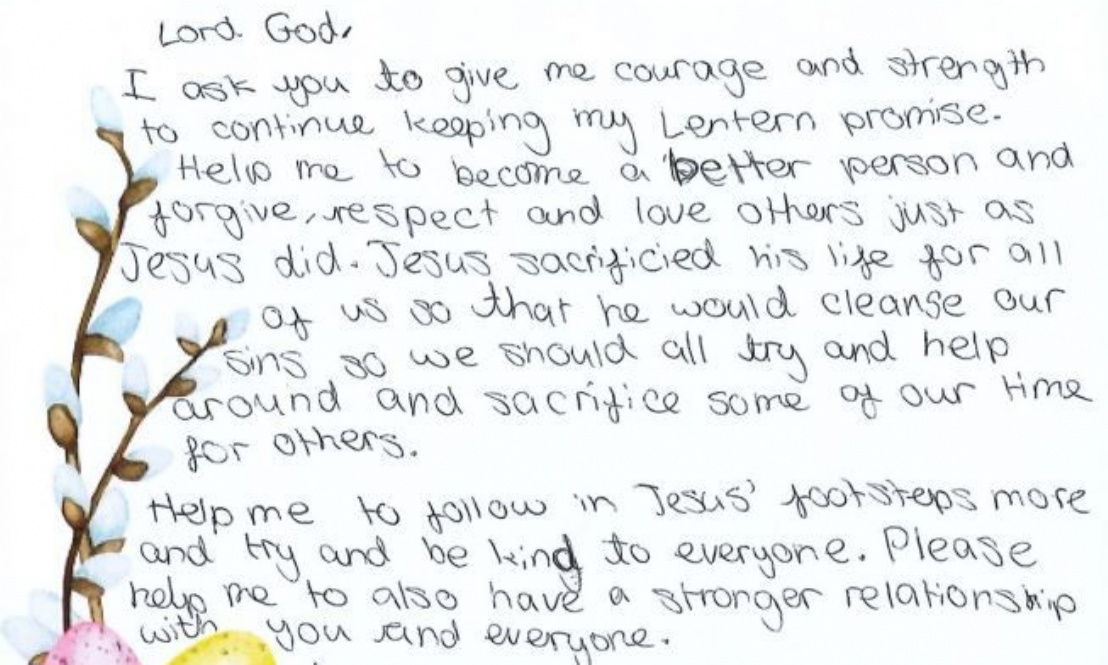 Lord God,
I ask you to give me courage and strength
to continue keeping my Lentern promise.
Help me to become a better person and
forgive, respect and love others just as
Jesus did. Jesus sacrificied his life for all
of us so that he would cleanse our
sins so we should all try and help
around and sacrifice some of our time
for others.
Help me to follow in Jesus' footsteps more
and try and be kind to everyone. Please
help me to also have a stronger relationship
with you and everyone.